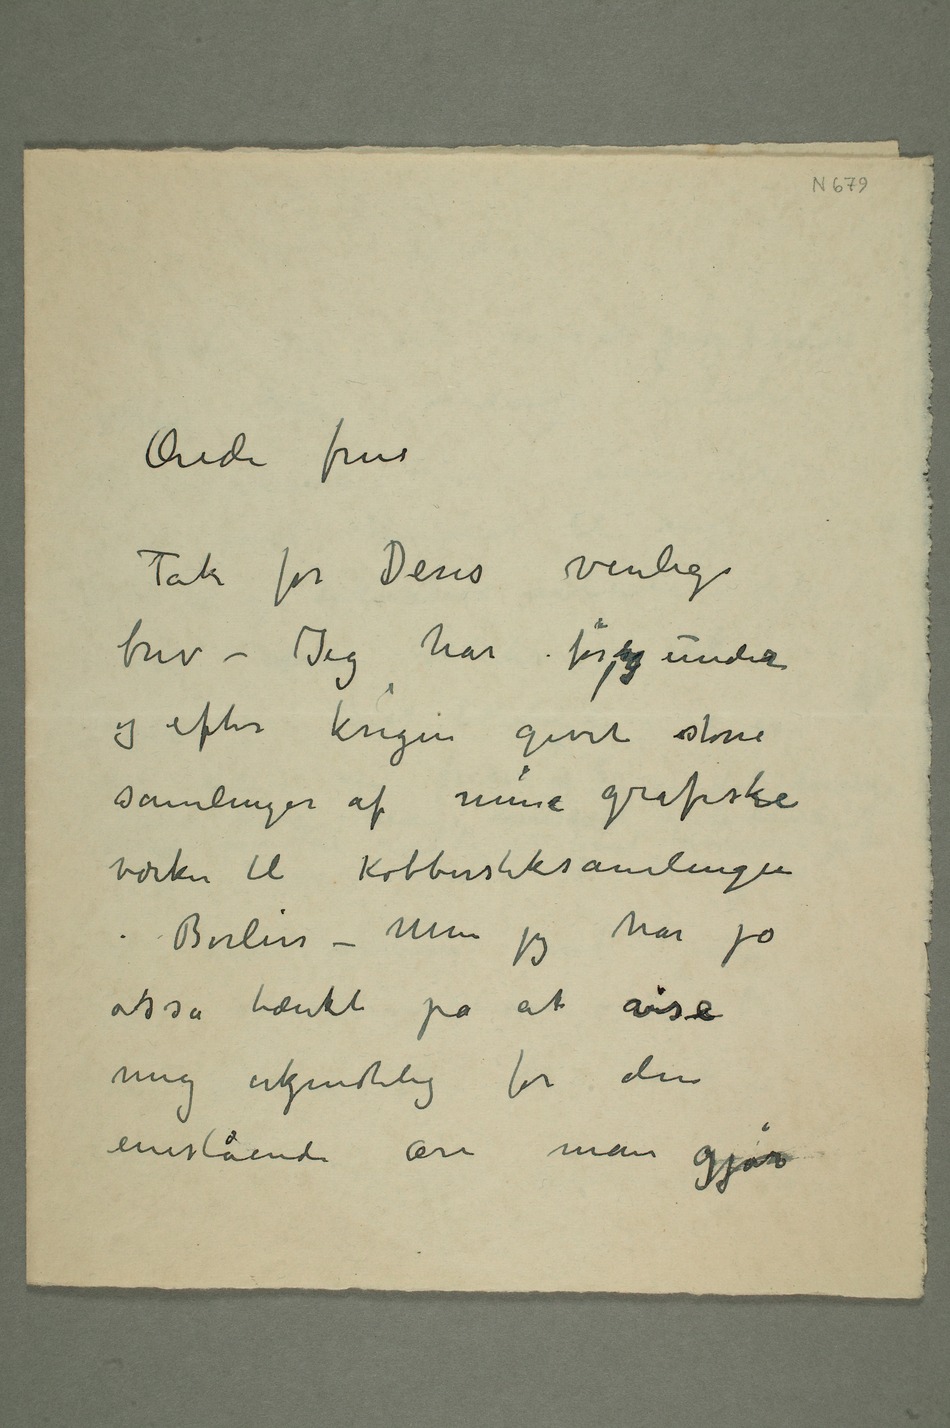 N 679
Ærede frue
Tak for Deres venlige
brev – Jeg har før, under
og efter krigen givet store
samlinger af mine grafiske
værker til Kobberstiksamlingen
i Berlin – Men jeg har jo
osså tænkt på at vise
mig erkjendtlig for den
enestående ære man gjør